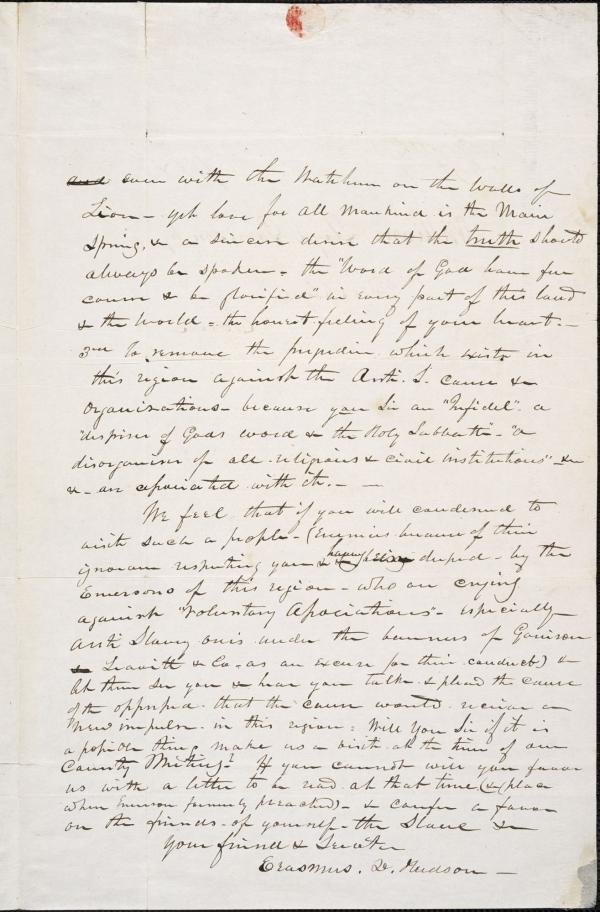 and even with the Watchmen on the Walls of
Zion - yet love for all mankind is the Main
Spring, & a sincere desire that the truth should
always be spoken - the "Word of God have free
course & be glorified" in every part of this land
& the World - the honest feeling of your heart. -
3rd to remove the prejudice which exists in
this region against the Anti. S. cause &
Organizations - because you Sir an "Infidel" - a
"despiser of Gods word & the Holy Sabbath" - "a
disorganiser of all religious & civil institutions" &c
&c - are associated with it. - -
We feel that if you will condescend to
visit such a people - (Enemies because of their
ignorance respecting you & having been duped - by the
Emersons of this region - who are crying
against "Voluntary Associations" - especially
Anti Slavery ones under the banners of Garrison
& Leavitt & Co. as an excuse for their conduct) &
let them see you & hear you talk & plead the cause
of the oppressed that the cause would receive a
new impulse in this region: Will You Sir if it is
a possible thing make us a visit at the time of our
County Meeting? If you cannot will you favor
us with a letter to be read at that time (& place
where Emerson formerly preached) - & confer a favor
on the friends of yourself - the Slave &c
Your friend & Servant
Erasmus. D. Hudson -